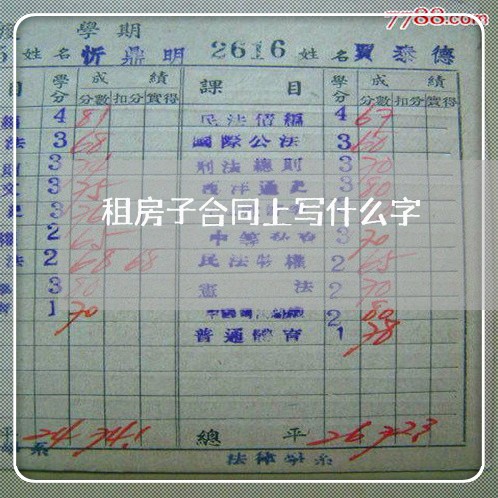 7788.com
學期
姓名 忻鼎明 2616 姓名 賈泰德
目 學分 成績 課目 學分 成績
分數 扣分 實得 分數 扣分 實得
4 81 民法債編 4 67
法 3 68 國際公法 3 60
3 刑法總則 3 70
3 75 西洋通史 3 80
租房子合同上写什么字
2 65 3 70
法 2 68 68 民法物權 2 65
3 80 憲法 2 70
1 70 2 80
普通體育 1 78
平 24 74.1 總平 26 72.3
系 法律學系